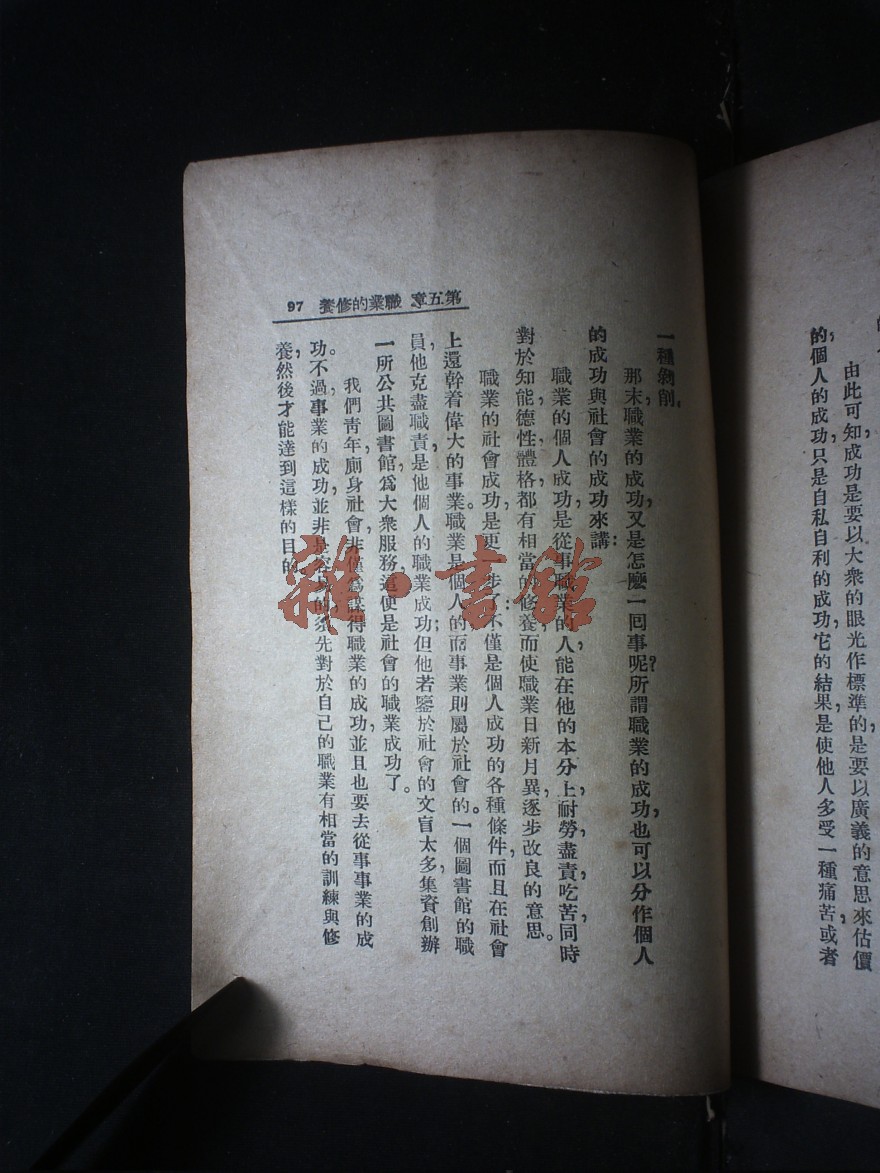 由此可知,成功是要以大衆的眼光作標準的,是要以廣義的意思來估價
的,個人的成功,只是自私自利的成功,它的結果,是使他人多受一種痛苦,或者
第五章 職業的修養 97
一種剝削。
那末,職業的成功,又是怎麼一回事呢?所謂職業的成功,也可以分作個人
的成功與社會的成功來講:
職業的個人成功,是從事職業的人,能在他的本分上,耐勞,盡責,吃苦,同時
對於知能,德性,體格,都有相當的修養,而使職業日新月異,逐步改良的意思。
職業的社會成功,是更一步了:不僅是個人成功的各種條件,而且在社會
上還幹着偉大的事業。職業是個人的,而事業則屬於社會的。一個圖書館的職
員,他克盡職責,是他個人的職業成功;但他若鑒於社會的文盲太多,集資創辦
一所公共圖書館,爲大衆服務,這便是社會的職業成功了。
我們青年,廁身社會,非僅爲謀得職業的成功,並且也要去從事事業的成
功。不過,事業的成功,並非是容易的,須先對於自己的職業有相當的訓練與修
養,然後才能達到這樣的目的。
雜·書館